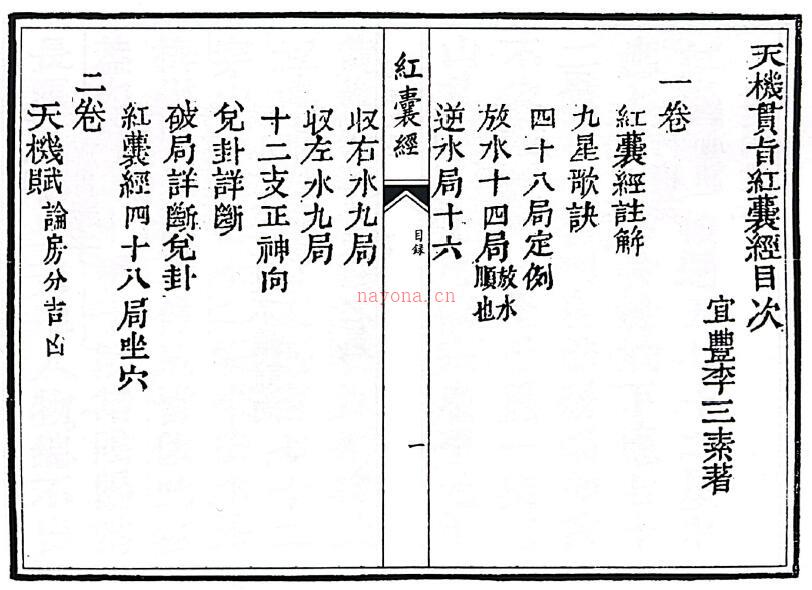 天機貫旨紅囊經目次
宜豐李三素著
一卷
紅囊經註解
九星歌訣
四十八局定例
放水十四局放水順也
逆水局十六
紅囊經
目録
一
收右水九局
收左水九局
十二支正神向
兌卦詳斷
破局詳斷兌卦
紅囊經四十八局坐穴
二卷
天機賦論房分吉凶
nayona.cn